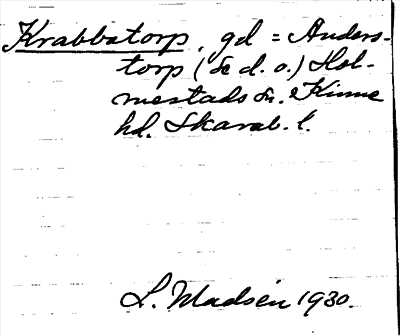 Krabbatorp, gd = Anders-
torp (se d. o.) Hol-
mestads sn. Kinne
hd. Skarab. l.
L. Madsén 1930.